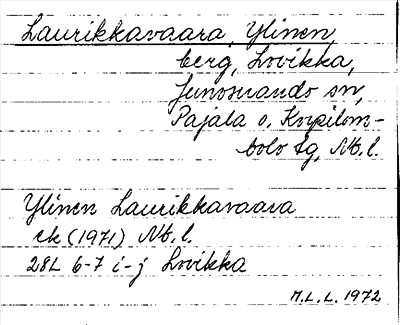 Laurikkavaara, Ylinen,
berg, Lovikka,
Junosuando sn,
Pajala o. Korpilom-
bolo tg, Nb. l.
Ylinen Laurikkavaara
ek (1971) Nb. l.
28L 6-7 i-j Lovikka
M.L.L. 1972